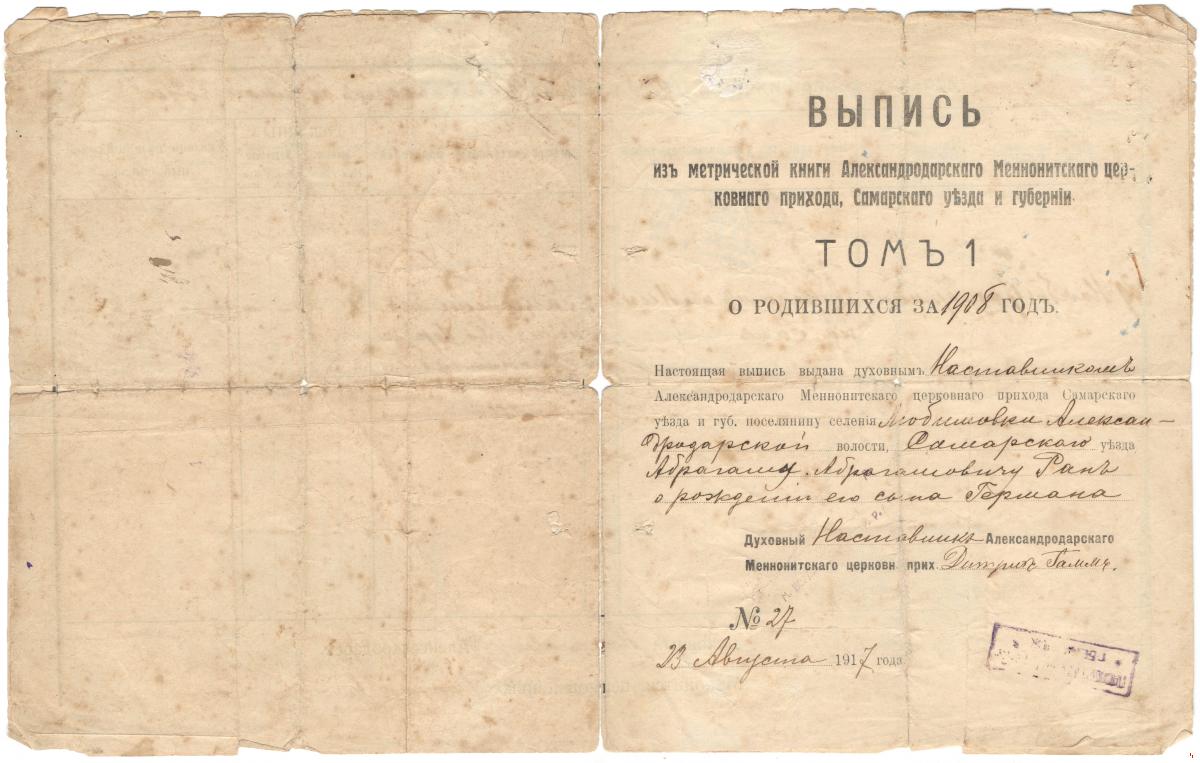 ВЫПИСЬ
изъ метрической книги Александродарскаго Меннонитскаго цер-
ковнаго прихода, Самарскаго уѣзда и губерніи
ТОМЪ 1
О РОДИВШИХСЯ ЗА 1908 ГОДЪ.
Настоящая выпись выдана духовнымъ Наставникомъ
Александродарскаго Меннонитскаго церковнаго прихода Самарскаго
уѣзда и губ. поселянину селенія Любимовки Алексан-
дродарской волости, Самарскаго уѣзда
Абрагаму Абрагамовичу Ранъ
о рожденіи его сына Германа
Духовный Наставникъ Александродарскаго
Меннонитскаго церковн. прих. Дитрихъ Гаммъ.
№ 27
23 Августа 1917 года